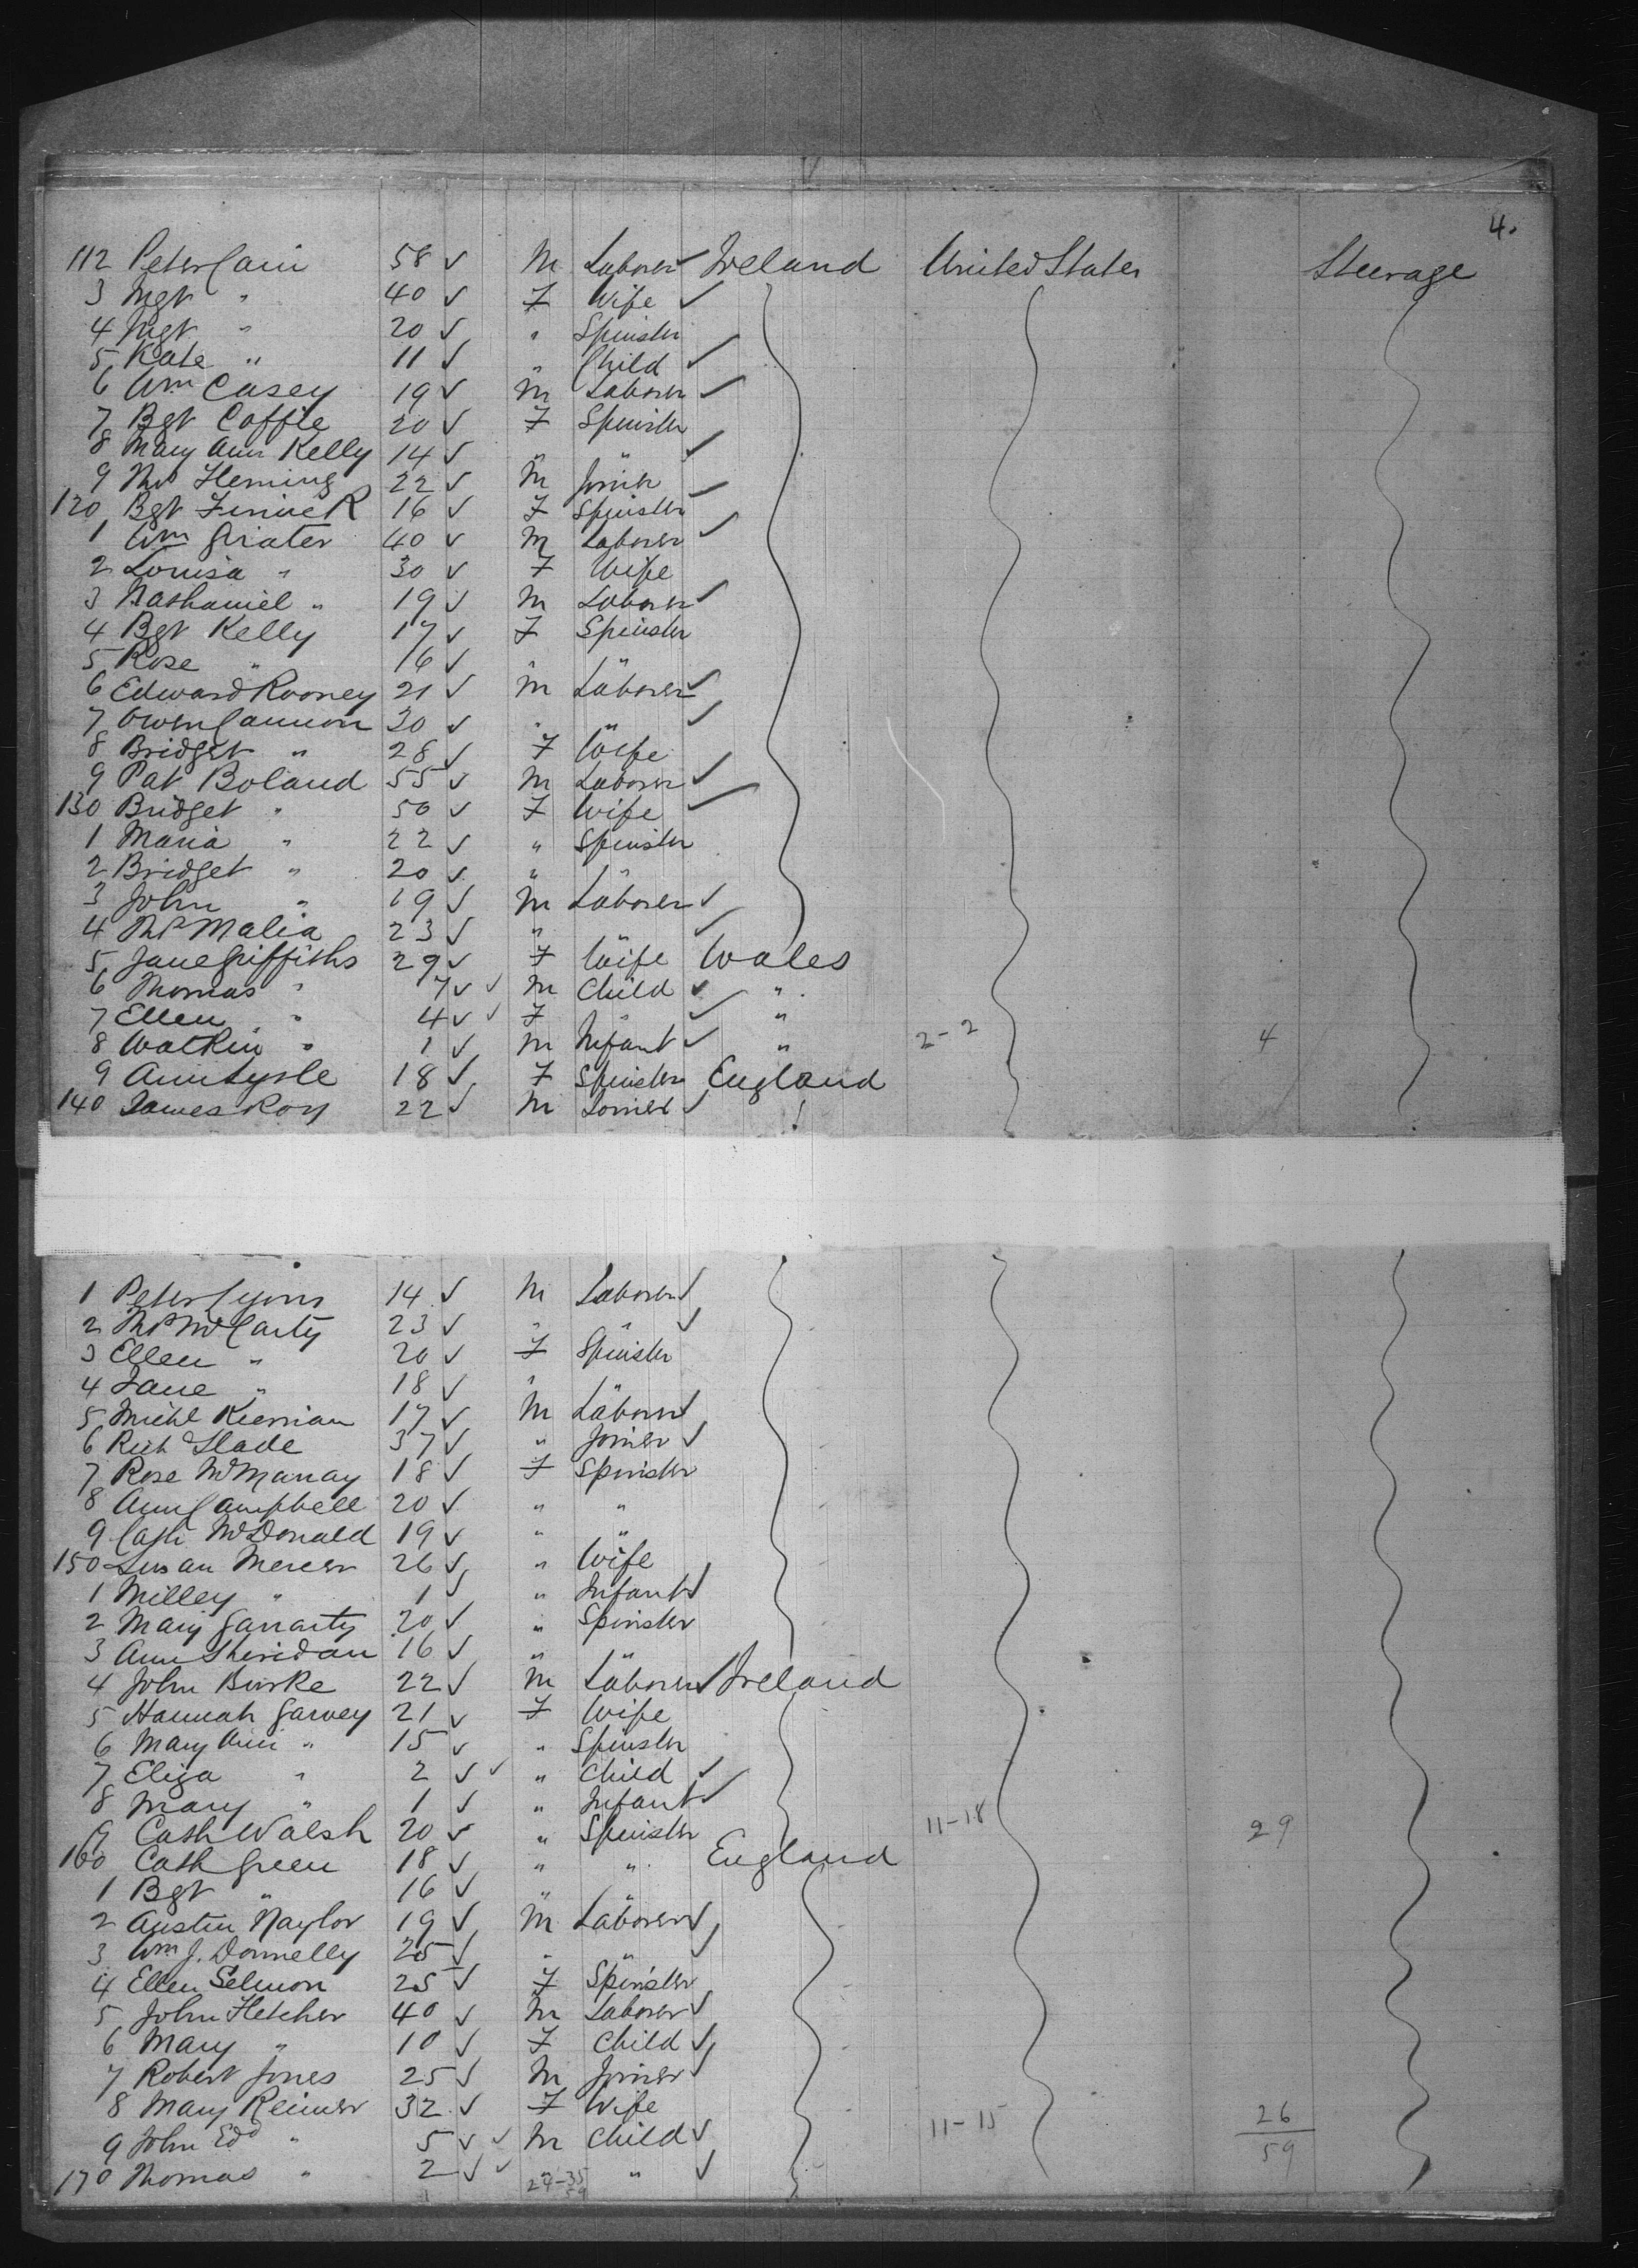 4.
112 Peter Cain 58 ✓ M Laborer ✓ Ireland United States Steerage
3 Mgt " 40 ✓ F Wife ✓
4 Mgt " 20 ✓ " Spinster
5 Kate " 11 ✓ " Child ✓
6 Wm Casey 19 ✓ M Laborer ✓
7 Bgt Coffie 20 ✓ F Spinster
8 Mary Ann Kelly 14 ✓ " " ✓
9 Ths Fleming 22 ✓ M Joiner ✓
120 Bgt Finnick 16 ✓ F Spinster
1 Wm 40 ✓ M Laborer ✓
2 Louisa " 30 ✓ F Wife
3 Nathaniel " 19 ✓ M Laborer ✓
4 Bgt Kelly 17 ✓ F Spinster
5 Rose " 16 ✓ " "
6 Edward Rooney 21 ✓ M Laborer ✓
7 Owen Cannon 30 ✓ " " ✓
8 Bridget " 28 ✓ F Wife
9 Pat Boland 55 ✓ M Laborer ✓
130 Bridget " 50 ✓ F Wife ✓
1 Maria " 22 ✓ " Spinster
2 Bridget " 20 ✓ " "
3 John " 19 ✓ M Laborer ✓
4 Ths Malia 23 ✓ " " ✓
5 Jane Griffiths 29 ✓ F Wife Wales
6 Thomas " 7 ✓ ✓ M Child ✓ "
7 Ellen " 4 ✓ ✓ F " ✓ "
8 Watkin " 1 ✓ M Infant ✓ " 2-2 4
9 Ann Lysle 18 ✓ F Spinster England
140 James Roy 22 ✓ M Joiner ✓
1 Peter Lyons 14 ✓ M Laborer ✓
2 Ths McCarty 23 ✓ " " ✓
3 Ellen " 20 ✓ F Spinster
4 Jane " 18 ✓ " "
5 Michl Kiernan 17 ✓ M Laborer ✓
6 Rich Slade 37 ✓ " Joiner ✓
7 Rose McManay 18 ✓ F Spinster
8 Ann Campbell 20 ✓ " "
9 Cath McDonald 19 ✓ " "
150 Susan Mercer 26 ✓ " Wife
1 Milley " 1 ✓ " Infant ✓
2 Mary Garrarty 20 ✓ " Spinster
3 Ann Sheridan 16 ✓ " "
4 John Burke 22 ✓ M Laborer ✓ Ireland
5 Hannah Garvey 21 ✓ F Wife
6 Mary Ann " 15 ✓ " Spinster
7 Eliza " 2 ✓ ✓ " Child ✓
8 Mary " 1 ✓ " Infant ✓
9 Cath Walsh 20 ✓ " Spinster 11-18 29
160 Cath Green 18 ✓ " " England
1 Bgt " 16 ✓ " "
2 Austin Naylor 19 ✓ M Laborer ✓
3 Wm J. Donnelly 25 ✓ " " ✓
4 Ellen Selmon 25 ✓ F Spinster
5 John Fletcher 40 ✓ M Laborer ✓
6 Mary " 10 ✓ F Child ✓
7 Robert Jones 25 ✓ M Joiner ✓
8 Mary Reimer 32 ✓ F Wife
9 John Edd " 5 ✓ ✓ M Child ✓ 11-15 26
170 Thomas " 2 ✓ ✓ " " ✓ 59
24-35
59